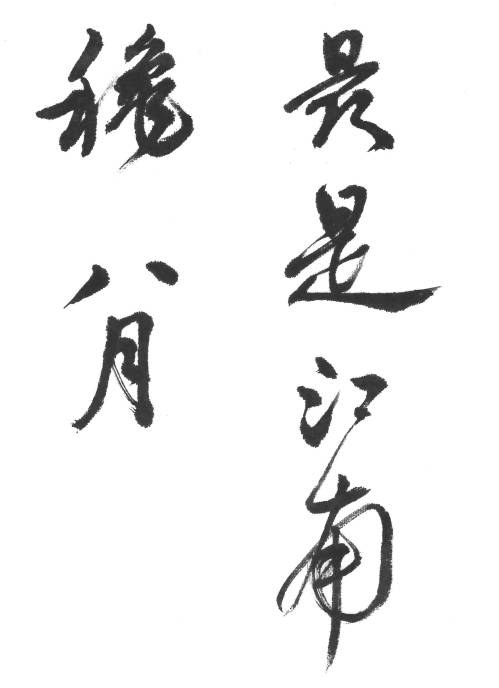 最是江南
穐八月